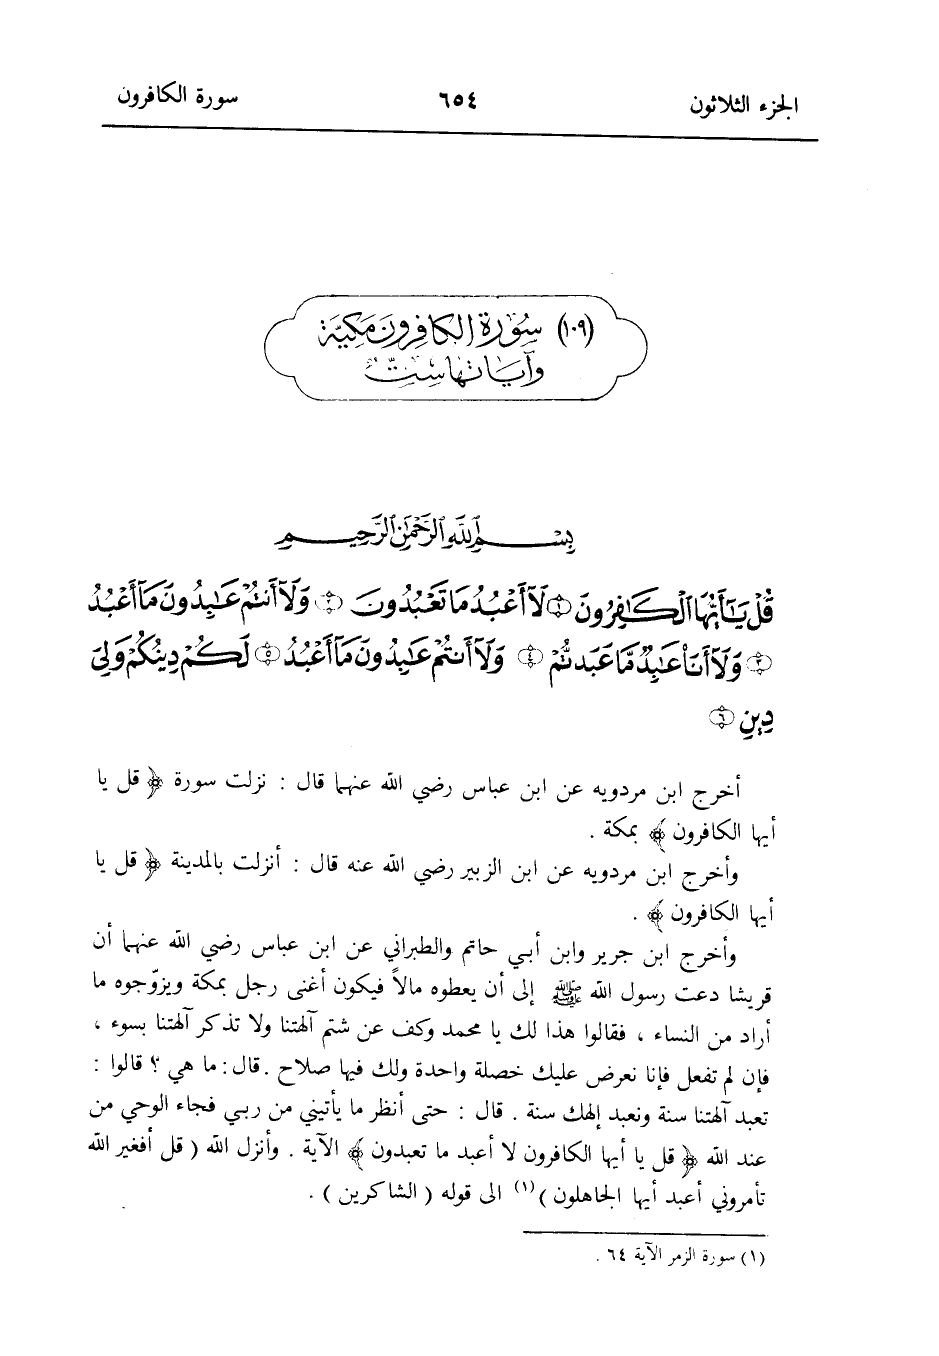 الجزء الثلاثون ٦٥٤ سورة الكافرون
(١٠٩) سُورَة الكافِرون مَكيَّة
وآيَاتها سِتّ
بِسْمِ ٱللَّهِ ٱلرَّحْمَٰنِ ٱلرَّحِيمِ
قُلْ يَٰٓأَيُّهَا ٱلْكَٰفِرُونَ ۝١ لَآ أَعْبُدُ مَا تَعْبُدُونَ ۝٢ وَلَآ أَنتُمْ عَٰبِدُونَ مَآ أَعْبُدُ
۝٣ وَلَآ أَنَا۠ عَابِدٌ مَّا عَبَدتُّمْ ۝٤ وَلَآ أَنتُمْ عَٰبِدُونَ مَآ أَعْبُدُ ۝٥ لَكُمْ دِينُكُمْ وَلِيَ
دِينِ ۝٦
أخرج ابن مردويه عن ابن عباس رضي الله عنهما قال : نزلت سورة ﴿ قل يا
أيها الكافرون ﴾ بمكة .
وأخرج ابن مردويه عن ابن الزبير رضي الله عنه قال : أنزلت بالمدينة ﴿ قل يا
أيها الكافرون ﴾ .
وأخرج ابن جرير وابن أبي حاتم والطبراني عن ابن عباس رضي الله عنهما أن
قريشا دعت رسول الله ﷺ إلى أن يعطوه مالاً فيكون أغنى رجل بمكة ويزوّجوه ما
أراد من النساء ، فقالوا هذا لك يا محمد وكف عن شتم آلهتنا ولا تذكر آلهتنا بسوء ،
فإن لم تفعل فإنا نعرض عليك خصلة واحدة ولك فيها صلاح . قال : ما هي ؟ قالوا :
تعبد آلهتنا سنة ونعبد إلهك سنة . قال : حتى أنظر ما يأتيني من ربي فجاء الوحي من
عند الله ﴿ قل يا أيها الكافرون لا أعبد ما تعبدون ﴾ الآية . وأنزل الله ( قل أفغير الله
تأمروني أعبد أيها الجاهلون ) (١) الى قوله ( الشاكرين ) .
(١) سورة الزمر الآية ٦٤ .